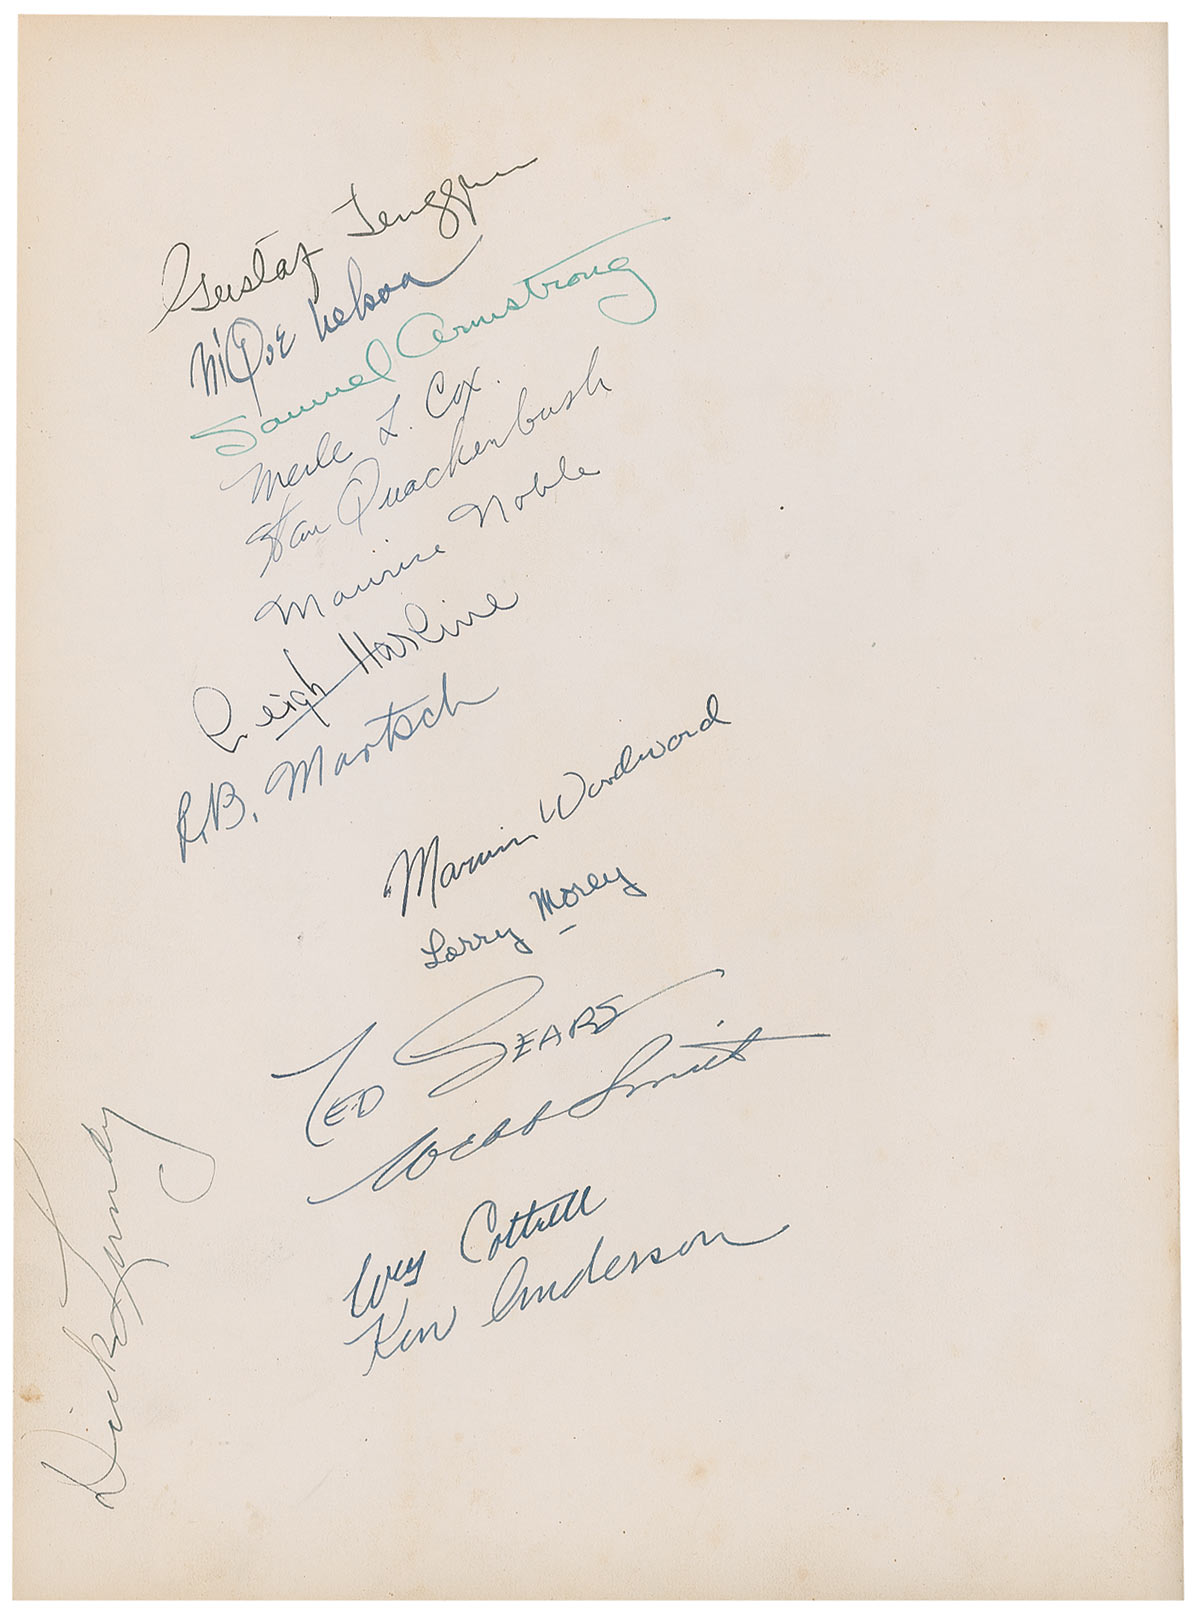 Gustaf Tenggren
Mique Nelson
Samuel Armstrong
Merle L. Cox.
Stan Quackenbush
Maurice Noble
Leigh Harline
R.B. Martsch
Marvin Woodward
Larry Morey
TED SEARS
Webb Smith
Wes Cottrell
Ken Anderson
Dick Lundy